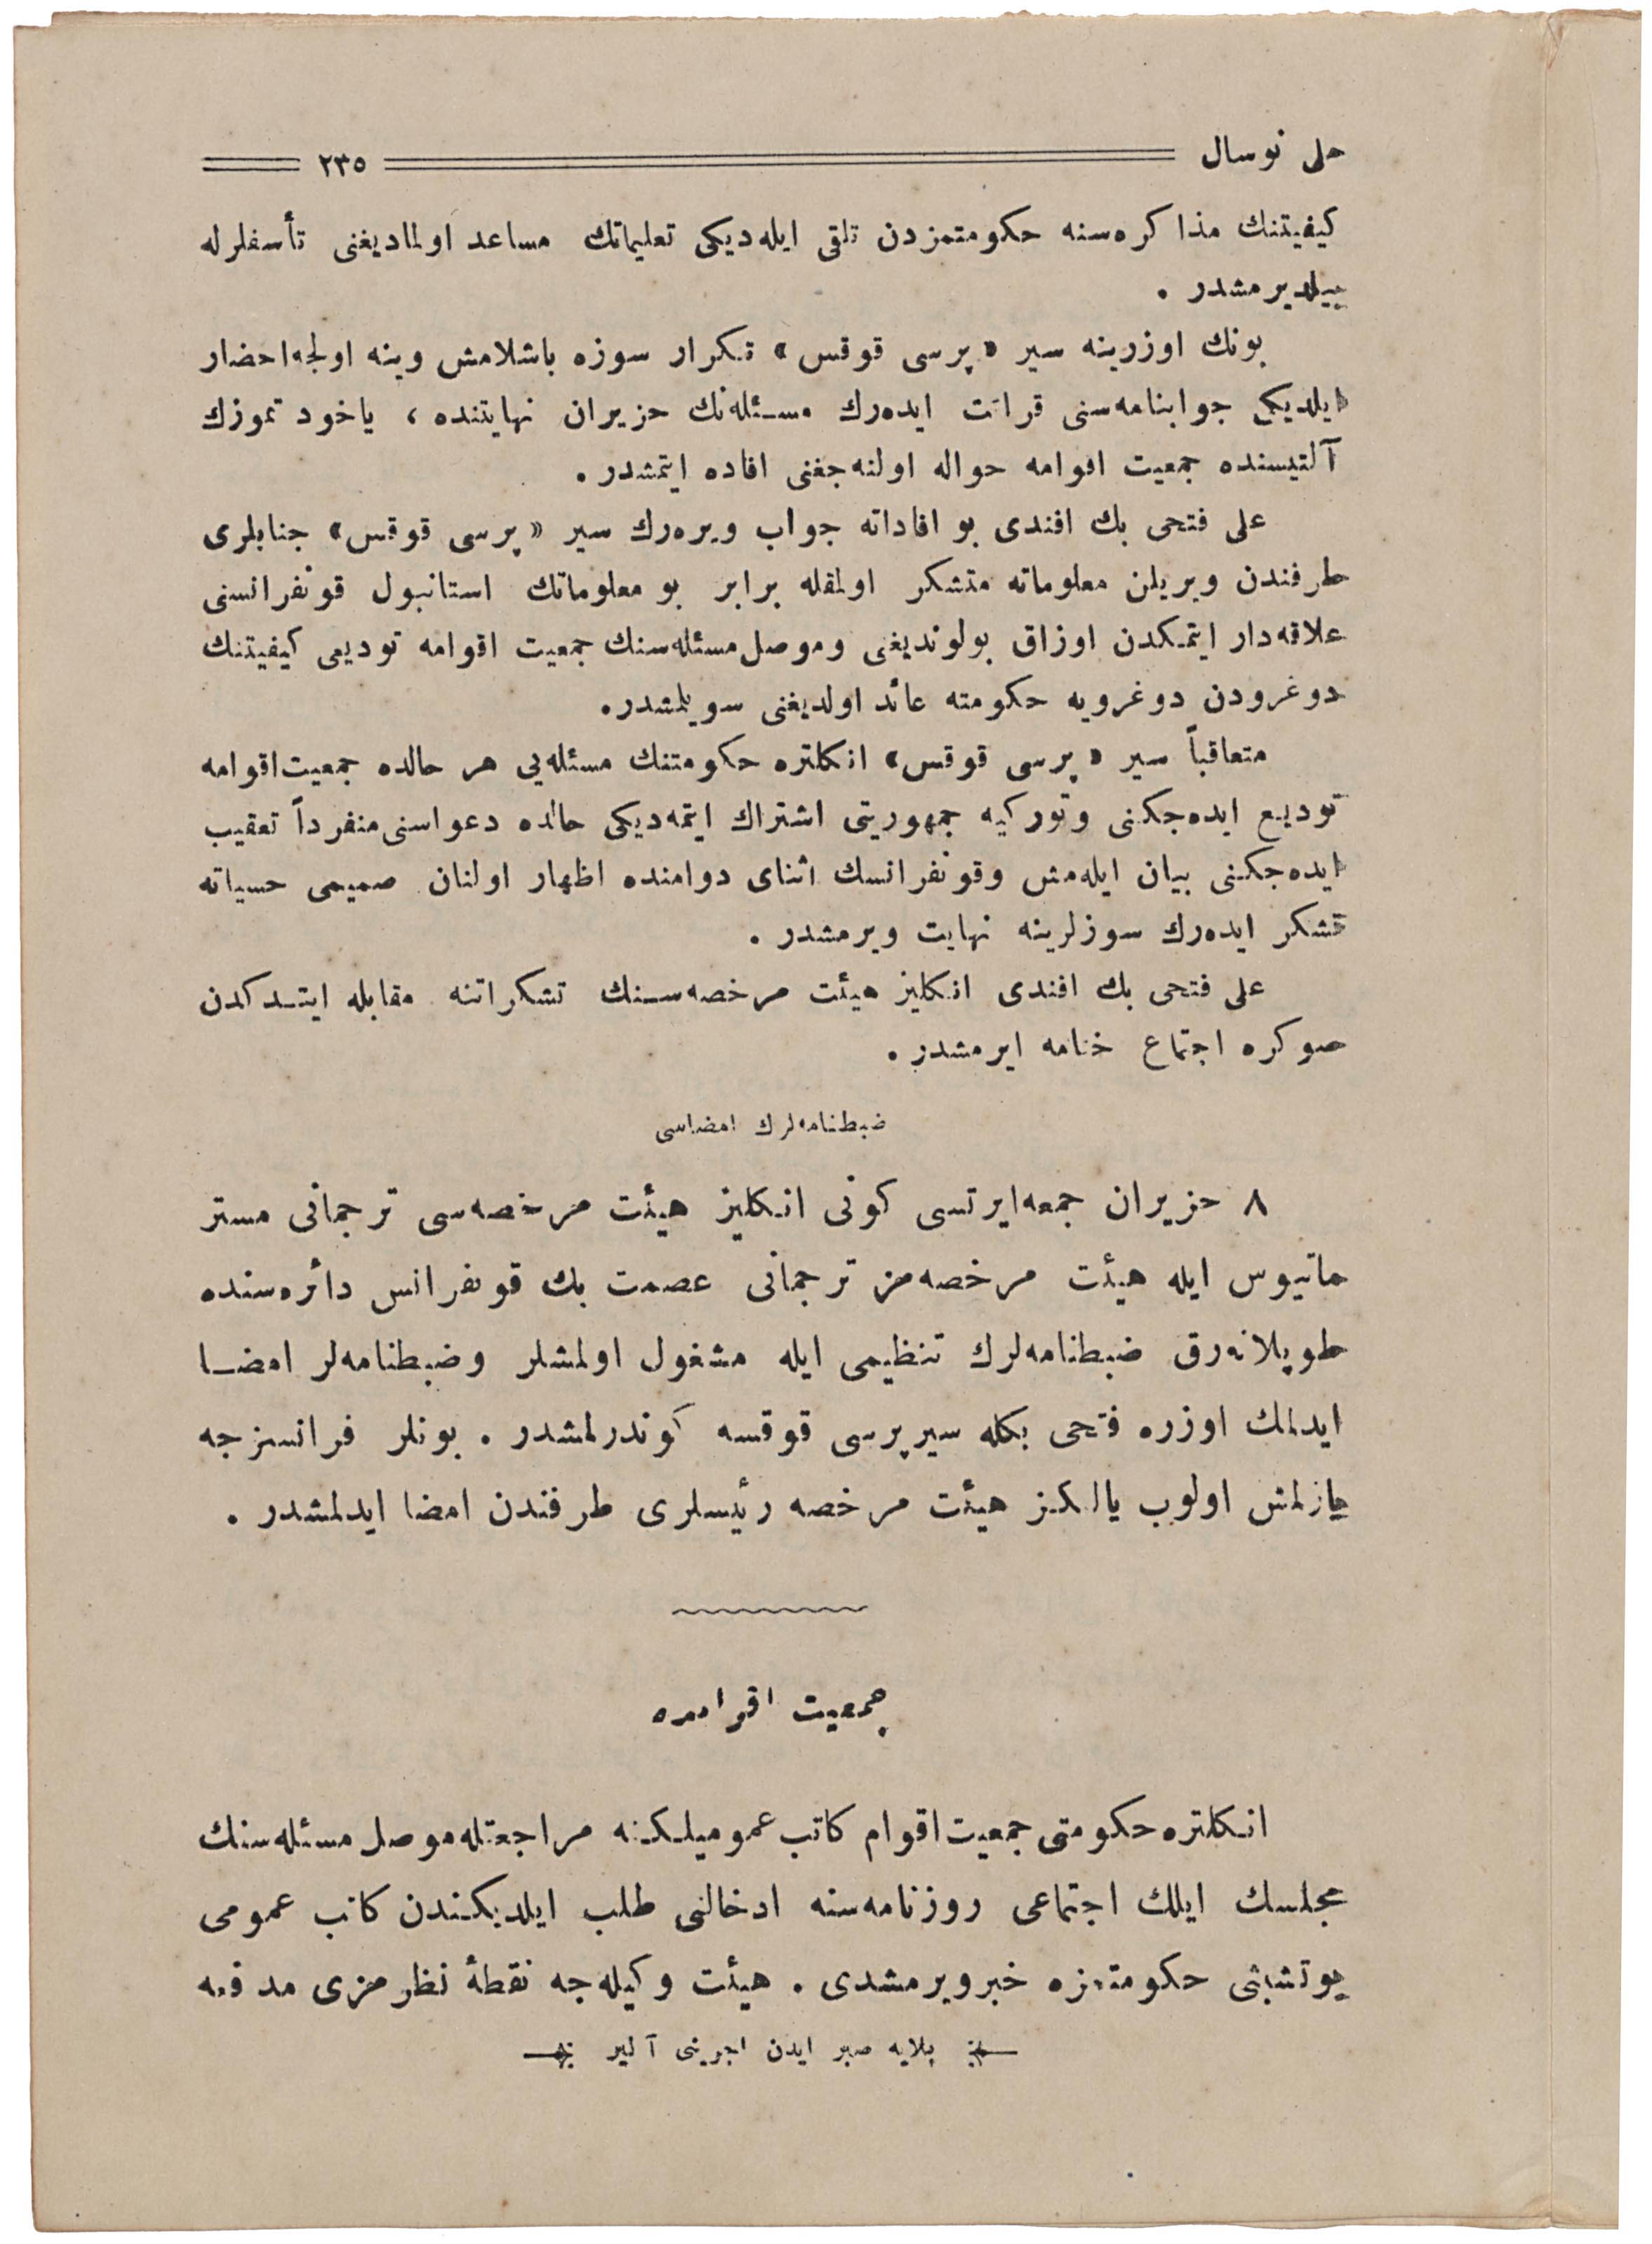 ملی نوسال ٢٣٥
كیفیتنك مذاكره‌سنه حكومتمزدن تلقی ایله‌دیكی تعلیماتك مساعد اولمادیغنی تأسفلرله
بیلدیرمشدر .
بونك اوزرینه سیر «پرسی قوقس» تكرار سوزه باشلامش وینه اولجه احضار
ایلدیكی جوابنامه‌سنی قرائت ایده‌رك مسئله‌نك حزیران نهایتنده ، یاخود تموزك
آلتیسنده جمعیت اقوامه حواله اولنه‌جغنی افاده ایتمشدر .
علی فتحی بك افندی بو افاداته جواب ویره‌رك سیر «پرسی قوقس» جنابلری
طرفندن ویریلن معلوماته متشكر اولمقله برابر بو معلوماتك استانبول قونفرانسنی
علاقه‌دار ایتمكدن اوزاق بولوندیغنی وموصل مسئله‌سنك جمعیت اقوامه تودیعی كیفیتنك
دوغرودن دوغرویه حكومته عائد اولدیغنی سویلمشدر.
متعاقباً سیر «پرسی قوقس» انكلتره حكومتنك مسئله‌یی هر حالده جمعیت اقوامه
تودیع ایده‌جكنی وتوركیه جمهوریتی اشتراك ایتمه‌دیكی حالده دعواسنی منفرداً تعقیب
ایده‌جكنی بیان ایله‌مش وقونفرانسك اثنای دوامنده اظهار اولنان صمیمی حسیاته
تشكر ایده‌رك سوزلرینه نهایت ویرمشدر .
علی فتحی بك افندی انكلیز هیئت مرخصه‌سنك تشكراتنه مقابله ایتدكدن
صوكره اجتماع ختامه ایرمشدر .
ضبطنامه‌لرك امضاسی
٨ حزیران جمعه‌ایرتسی كونی انكلیز هیئت مرخصه‌سی ترجمانی مستر
ماتیوس ایله هیئت مرخصه‌مز ترجمانی عصمت بك قونفرانس دائره‌سنده
طوپلانه‌رق ضبطنامه‌لرك تنظیمی ایله مشغول اولمشلر وضبطنامه‌لر امضا
ایدلمك اوزره فتحی بكله سیرپرسی قوقسه كوندرلمشدر . بونلر فرانسزجه
یازلمش اولوب یالكز هیئت مرخصه رئیسلری طرفندن امضا ایدلمشدر .
جمعیت اقوامده
انكلتره حكومتی جمعیت اقوام كاتب عمومیلكنه مراجعتله موصل مسئله‌سنك
مجلسك ایلك اجتماعی روزنامه‌سنه ادخالنی طلب ایلدیكندن كاتب عمومی
بوتشبثی حكومتمزه خبرویرمشدی . هیئت وكیله‌جه نقطهٔ نظرمزی مدقیه
بلایه صبر ایدن اجرینی آلیر